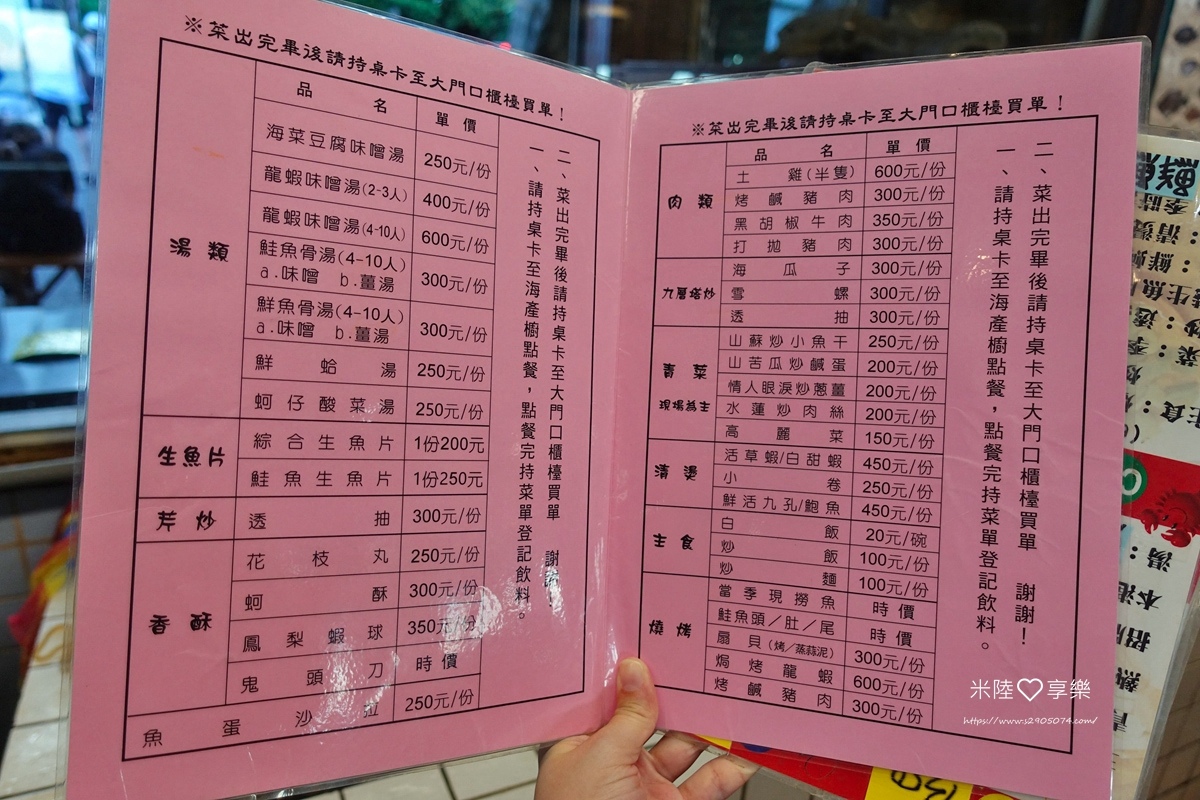 ※菜出完畢後請持桌卡至大門口櫃檯買單！
品名 單價
湯類
海菜豆腐味噌湯 250元/份
龍蝦味噌湯(2-3人) 400元/份
龍蝦味噌湯(4-10人) 600元/份
鮭魚骨湯(4-10人)
a.味噌 b.薑湯 300元/份
鮮魚骨湯(4-10人)
a.味噌 b.薑湯 300元/份
鮮蛤湯 250元/份
蚵仔酸菜湯 250元/份
生魚片
綜合生魚片 1份200元
鮭魚生魚片 1份250元
芹炒
透抽 300元/份
香酥
花枝丸 250元/份
蚵酥 300元/份
鳳梨蝦球 350元/份
鬼頭刀 時價
魚蛋沙拉 250元/份
一、請持桌卡至海產櫥點餐，點餐完持菜單登記飲料。
二、菜出完畢後請持桌卡至大門口櫃檯買單 謝謝！
※菜出完畢後請持桌卡至大門口櫃檯買單！
品名 單價
肉類
土雞(半隻) 600元/份
烤鹹豬肉 300元/份
黑胡椒牛肉 350元/份
打拋豬肉 300元/份
九層塔炒
海瓜子 300元/份
雪螺 300元/份
透抽 300元/份
青菜
現場為主
山蘇炒小魚干 250元/份
山苦瓜炒鹹蛋 200元/份
情人眼淚炒蔥薑 200元/份
水蓮炒肉絲 200元/份
高麗菜 150元/份
清燙
活草蝦/白甜蝦 450元/份
小卷 250元/份
鮮活九孔/鮑魚 450元/份
主食
白飯 20元/碗
炒飯 100元/份
炒麵 100元/份
燒烤
當季現撈魚 時價
鮭魚頭／肚／尾 時價
扇貝(烤／蒸蒜泥) 300元/份
焗烤龍蝦 600元/份
烤鹹豬肉 300元/份
一、請持桌卡至海產櫥點餐，點餐完持菜單登記飲料。
二、菜出完畢後請持桌卡至大門口櫃檯買單 謝謝！
米陸♡享樂
https://www.s2905074.com/